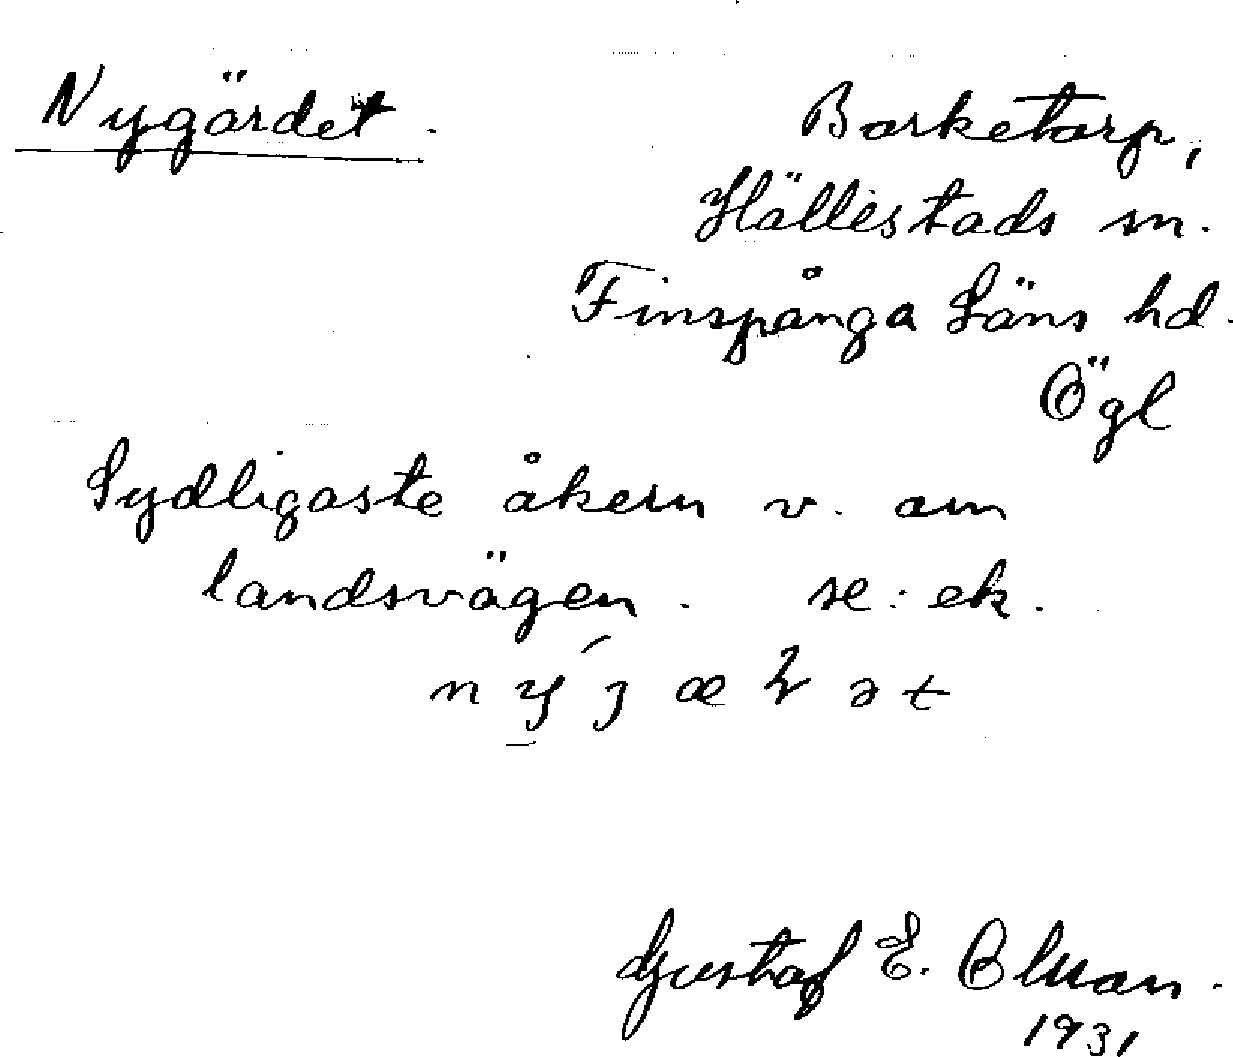 Nygärdet.
Barketorp,
Hällestads sn.
Finspånga Läns hd.
Ögl
Sydligaste åkern v. om
landsvägen. se: ek.
Gustaf E. Olson.
1931